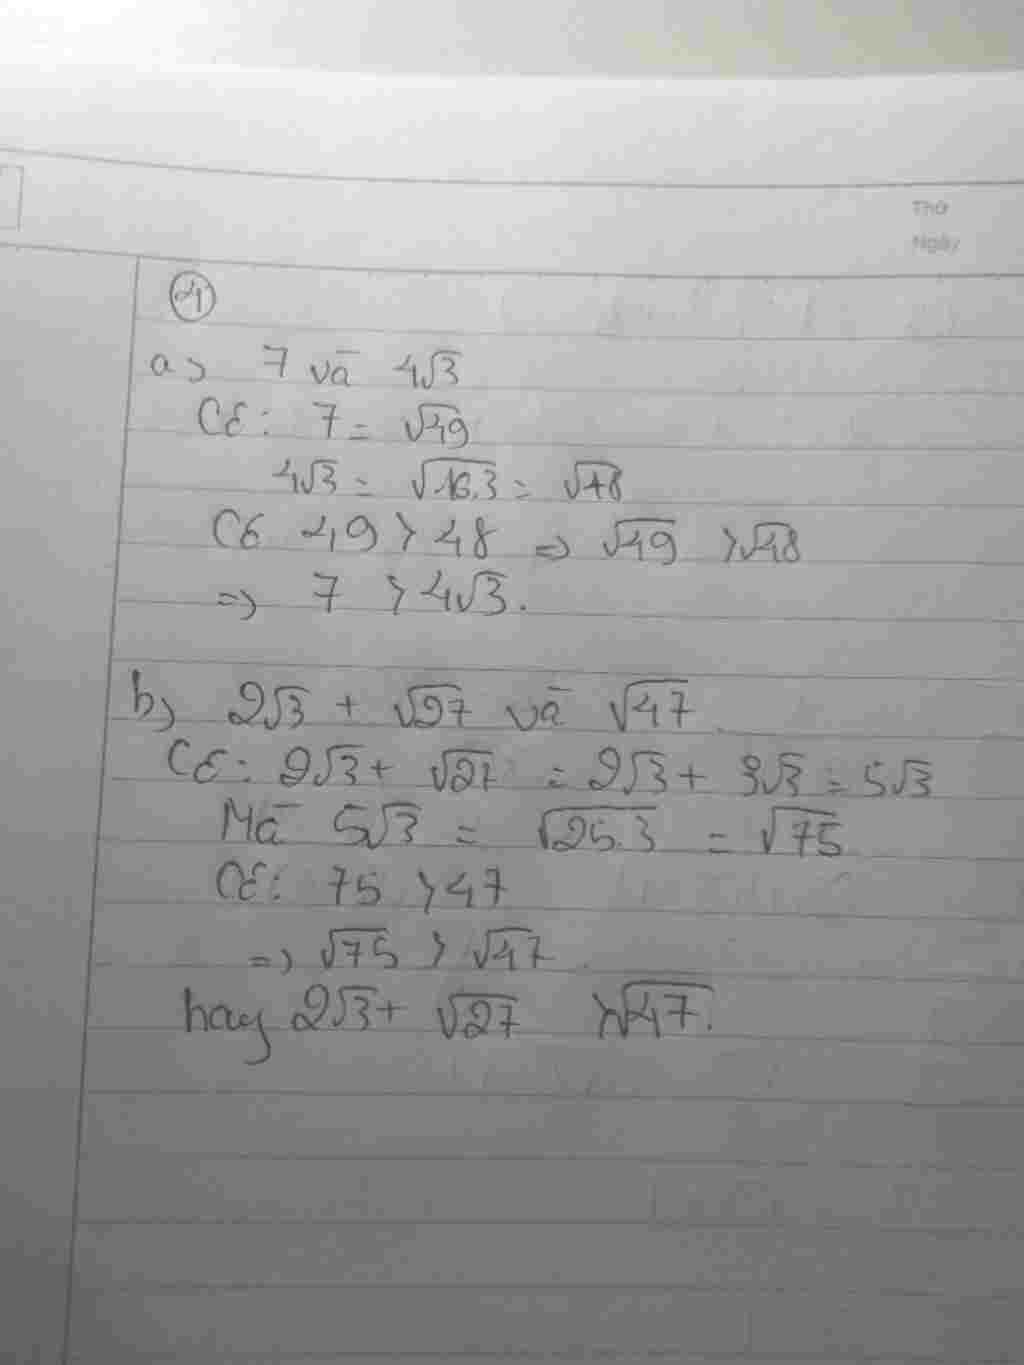 Thứ
Ngày
4
a) 7 và 4√3
Có: 7 = √49
4√3 = √16.3 = √48
Có 49 > 48 => √49 > √48
=> 7 > 4√3.
b) 2√3 + √27 và √47
Có: 2√3 + √27 = 2√3 + 3√3 = 5√3
Mà 5√3 = √25.3 = √75
Có: 75 > 47
=> √75 > √47
hay 2√3 + √27 > √47.